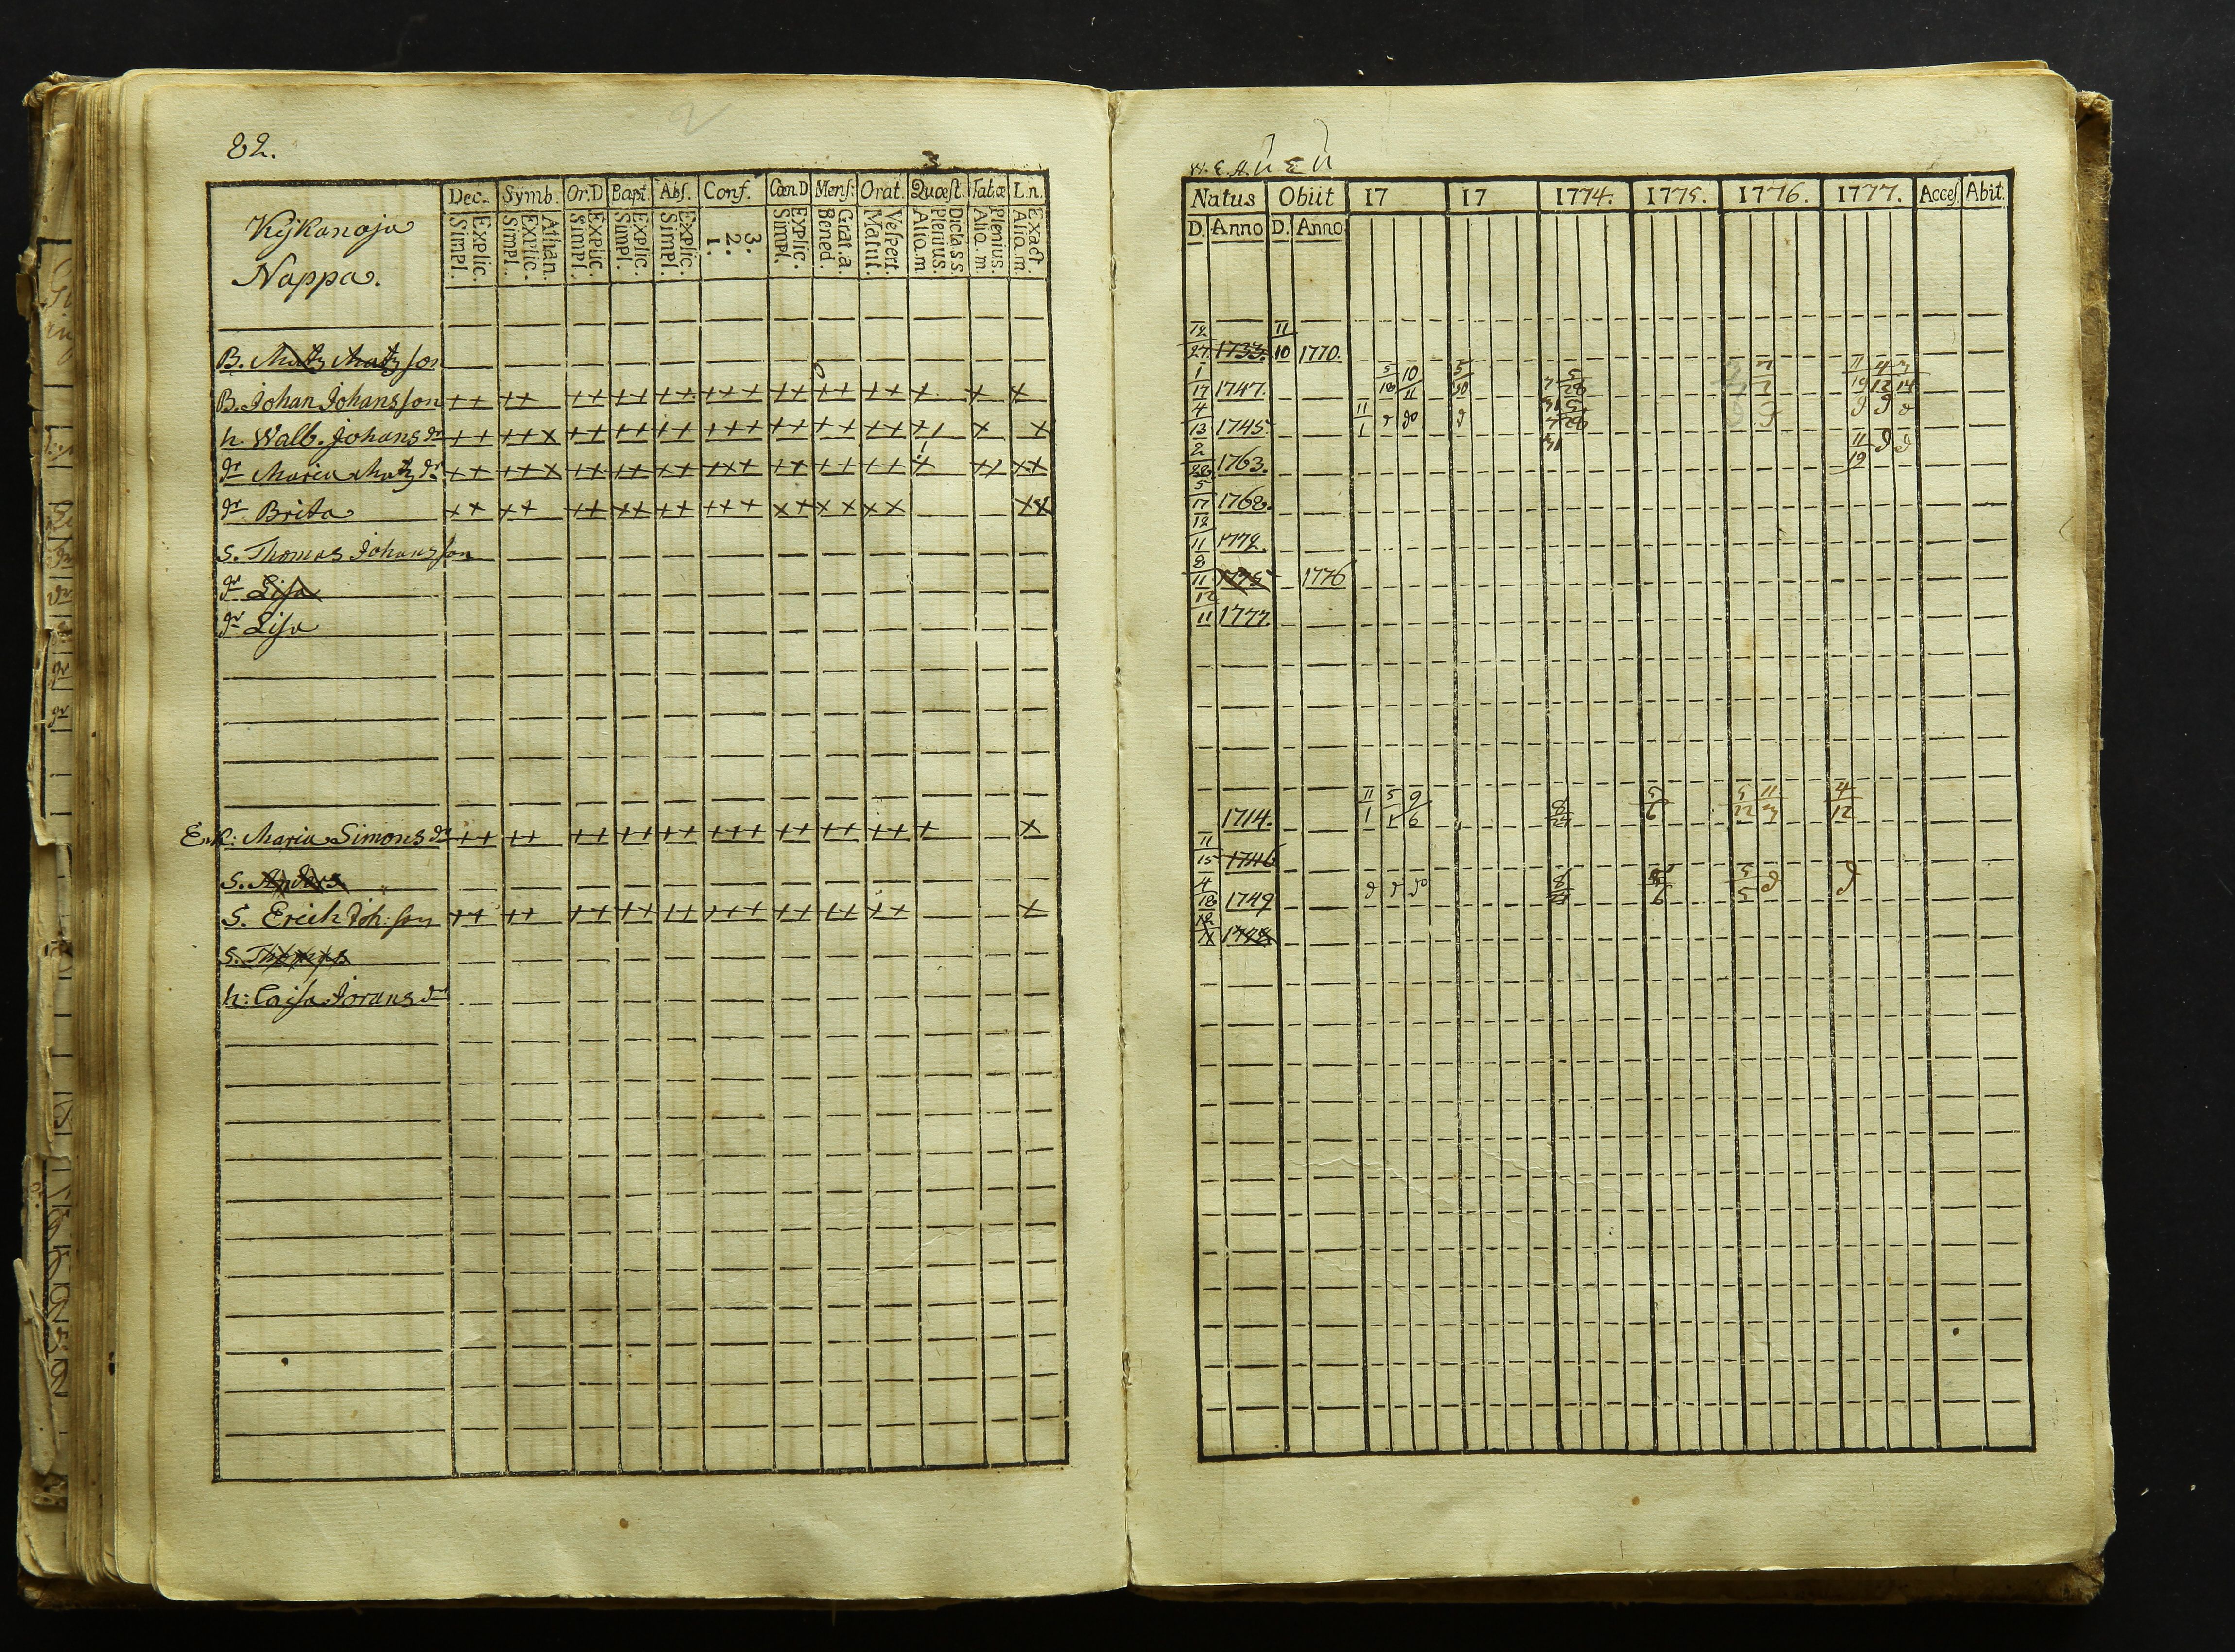 82.
Kÿkanoja
Nappa.
Dec. Symb. Or.D Bapt. Abs. Conf. Cœn.D Mens: Orat. Quæst. Tabæ L.n.
Explic. Simpl. Athan. Explic. Simpl. Explic. Simpl. Explic. Simpl. Explic. Simpl. 3. 2. 1. Explic. Simpl. Grat.a. Bened. Vespert. Matut. Dicta.s.s. Plenius. Aliq.m. Plenius. Aliq.m. Exact. Aliq.m.
B. Matz Matzson
B. Johan Johansson ++ ++ ++ ++ ++ +++ ++ ++ ++ + + +
h. Walb. Johans dr ++ ++x ++ ++ ++ +++ ++ ++ ++ + x x
dr Maria Matz dr ++ ++x ++ ++ ++ +++ ++ ++ ++ + ++ xx
dr Brita ++ ++ ++ ++ ++ +++ ++ xx xx xx
S. Thomas Johansson
dr Lisa
dr Lisa
Enk: Maria Simons dr ++ ++ ++ ++ ++ +++ ++ ++ +++ + x
S. Anders
S. Erich Joh:son ++ ++ ++ ++ ++ +++ ++ ++ ++ x
S. Thomas
h: Caisa Jörans dr
Natus Obiit 17 17 1774. 1775. 1776. 1777. Acces. Abit.
D. Anno D. Anno
12/27 1733. 11/10 1770.
1/17 1747. 5/18 10/11 5/30
4/13 1745 11/1
2/22 1763. 11/19
5/17 1768.
12/11 1772.
8/11 1775 1776
12/11 1777.
1714. 11/1 5/1 9/6 5/6 4/12
11/15 1746
4/18 1749